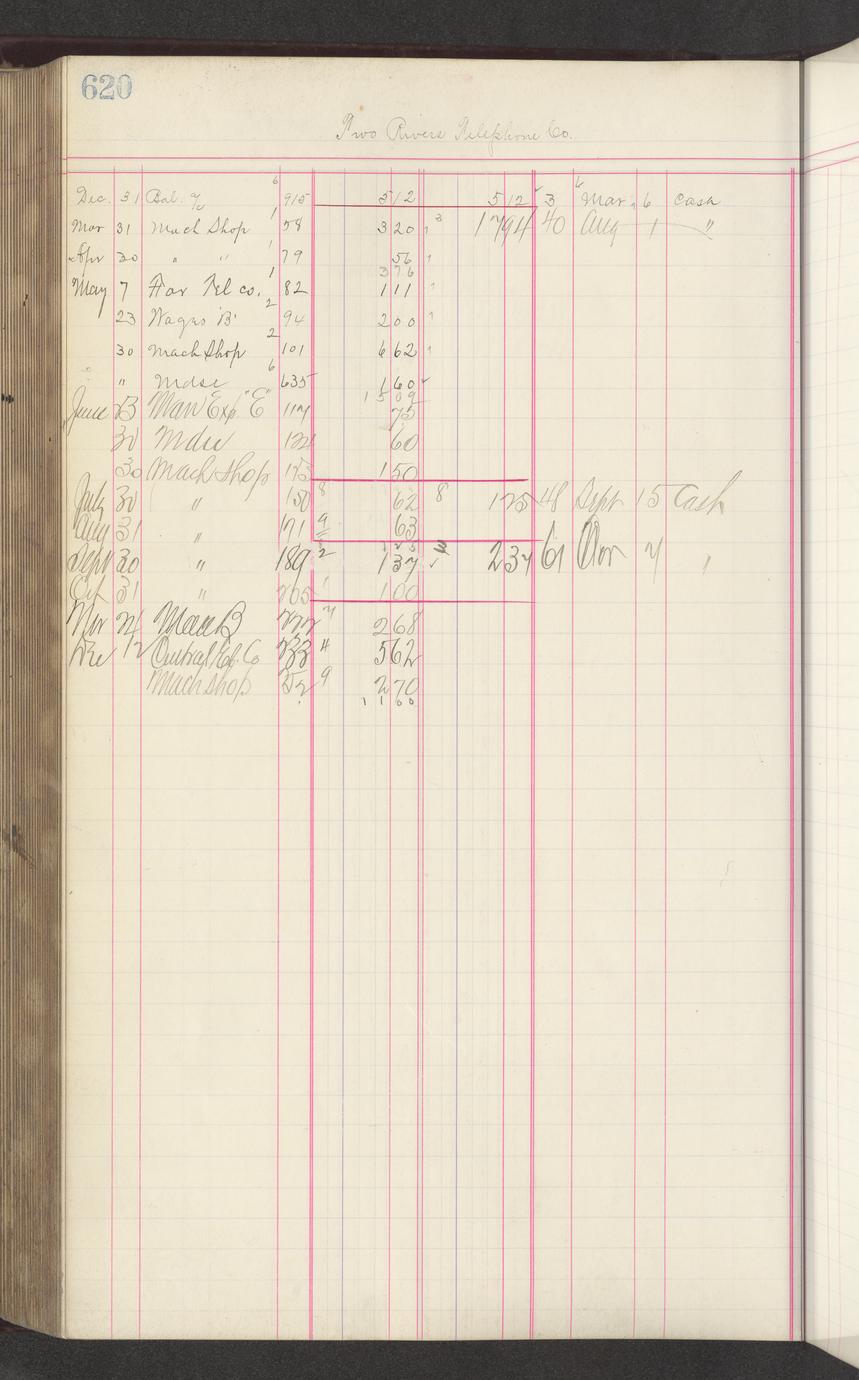 620
Two Rivers Telephone Co.
Dec. 31 Bal. a/c 6 915 5 12 5 12 3 6 Mar. 6 Cash
Mar 31 Mach Shop 1 58 3 20 3 17 94 40 Aug 1 "
Apr 30 " " 1 79 56
3 76
May 7 Far Tel co. 1 82 1 11
23 Wages 'B' 2 94 2 00
30 Mach Shop 2 101 6 62
" " Mdse 6 635 1 60
15 09
June 23 Man Exp "E" 117 75
30 Mdse 60
30 Mach Shop 1 50
July 30 " 150 8 62 8 1 25 48 Sept 15 Cash
Aug 31 " 171 9 63
1 25
Sept 30 " 189 2 1 37 2 37 61 Nov 7 "
Oct 31 " 205 1 1 00
Nov 24 B 222 7 2 68
Dec 12 Central Co 233 4 5 62
Mach Shop 252 9 2 70
11 00